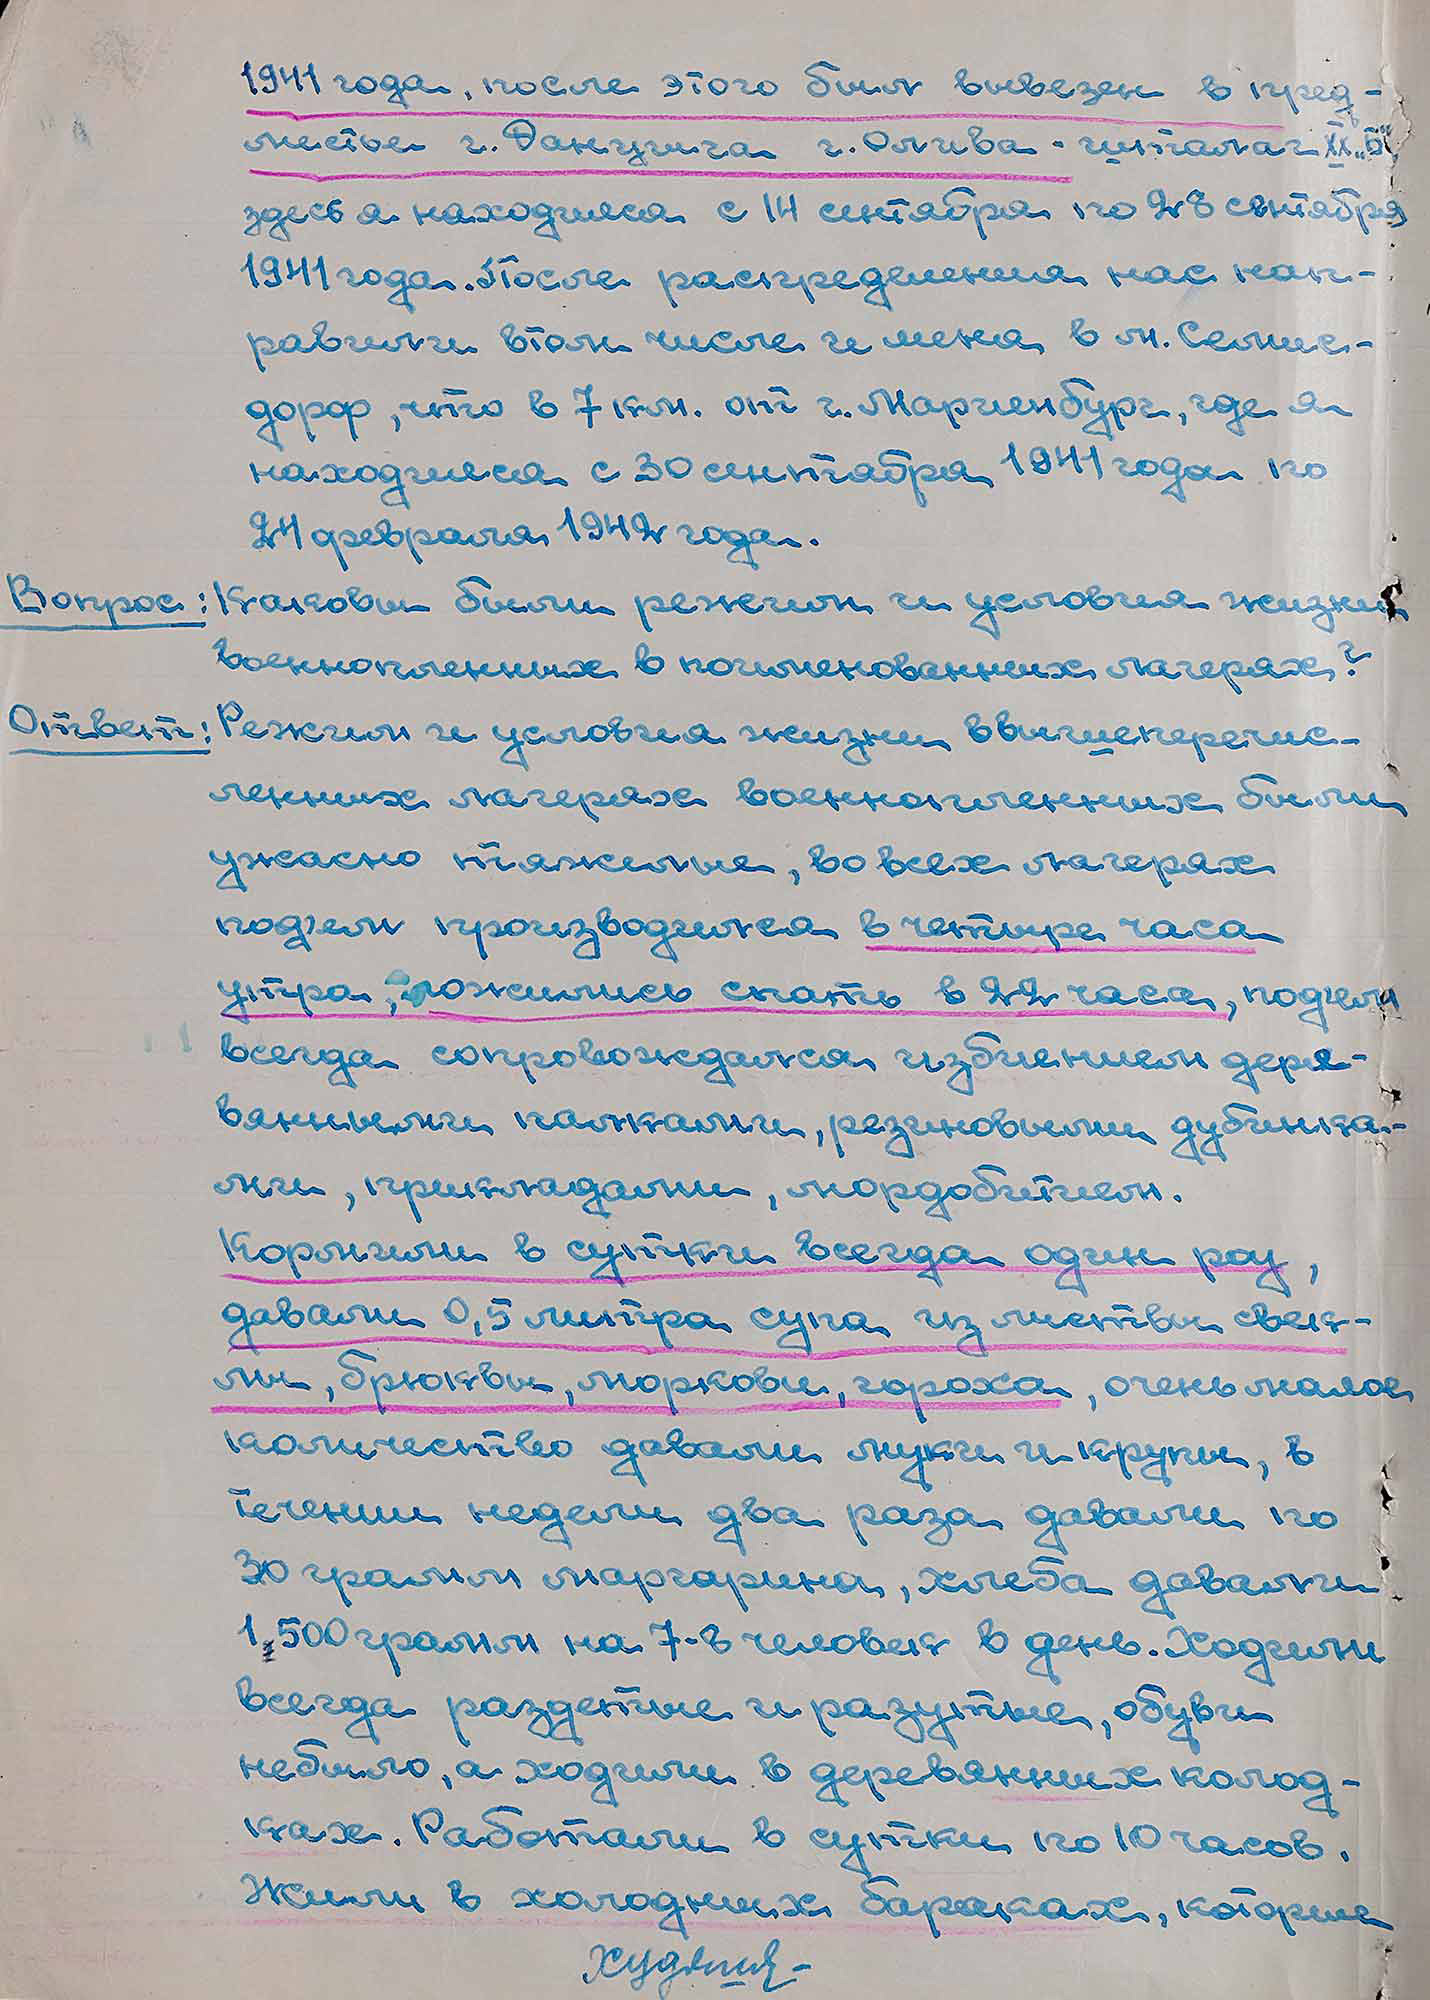 1941 года, после этого был вывезен в пред-
местье г. Данцига г. Олива - шталаг XX „Б“,
здесь я находился с 14 сентября по 28 сентября
1941 года. После распределения нас нап-
равили втом числе и меня в м.
дорф, что в 7 км. от г. Мариенбург, где я
находился с 30 сентября 1941 года по
24 февраля 1942 года.
Вопрос: Каковы были режим и условия жизни
военнопленных в поименованных лагерях?
Ответ: Режим и условия жизни ввышеперечис-
ленных лагерях военнопленных были
ужасно тяжелые, во всех лагерях
подъем производился в четыре часа
утра, ложились спать в 22 часа, подъем
всегда сопровождался избиением дере-
вянными палками, резиновыми дубинка-
ми, прикладами, мордобитием.
Кормили в сутки всегда один раз,
давали 0,5 литра супа из листвы свек-
лы, брюквы, моркови, гороха, очень малое
количество давали муки и крупы, в
течении недели два раза давали по
30 грамм маргарина, хлеба давали
1,500 грамм на 7-8 человек в день. Ходили
всегда раздетые и разутые, обуви
небыло, а ходили в деревянных колод-
ках. Работали в сутки по 10 часов.
Жили в холодных бараках, которые